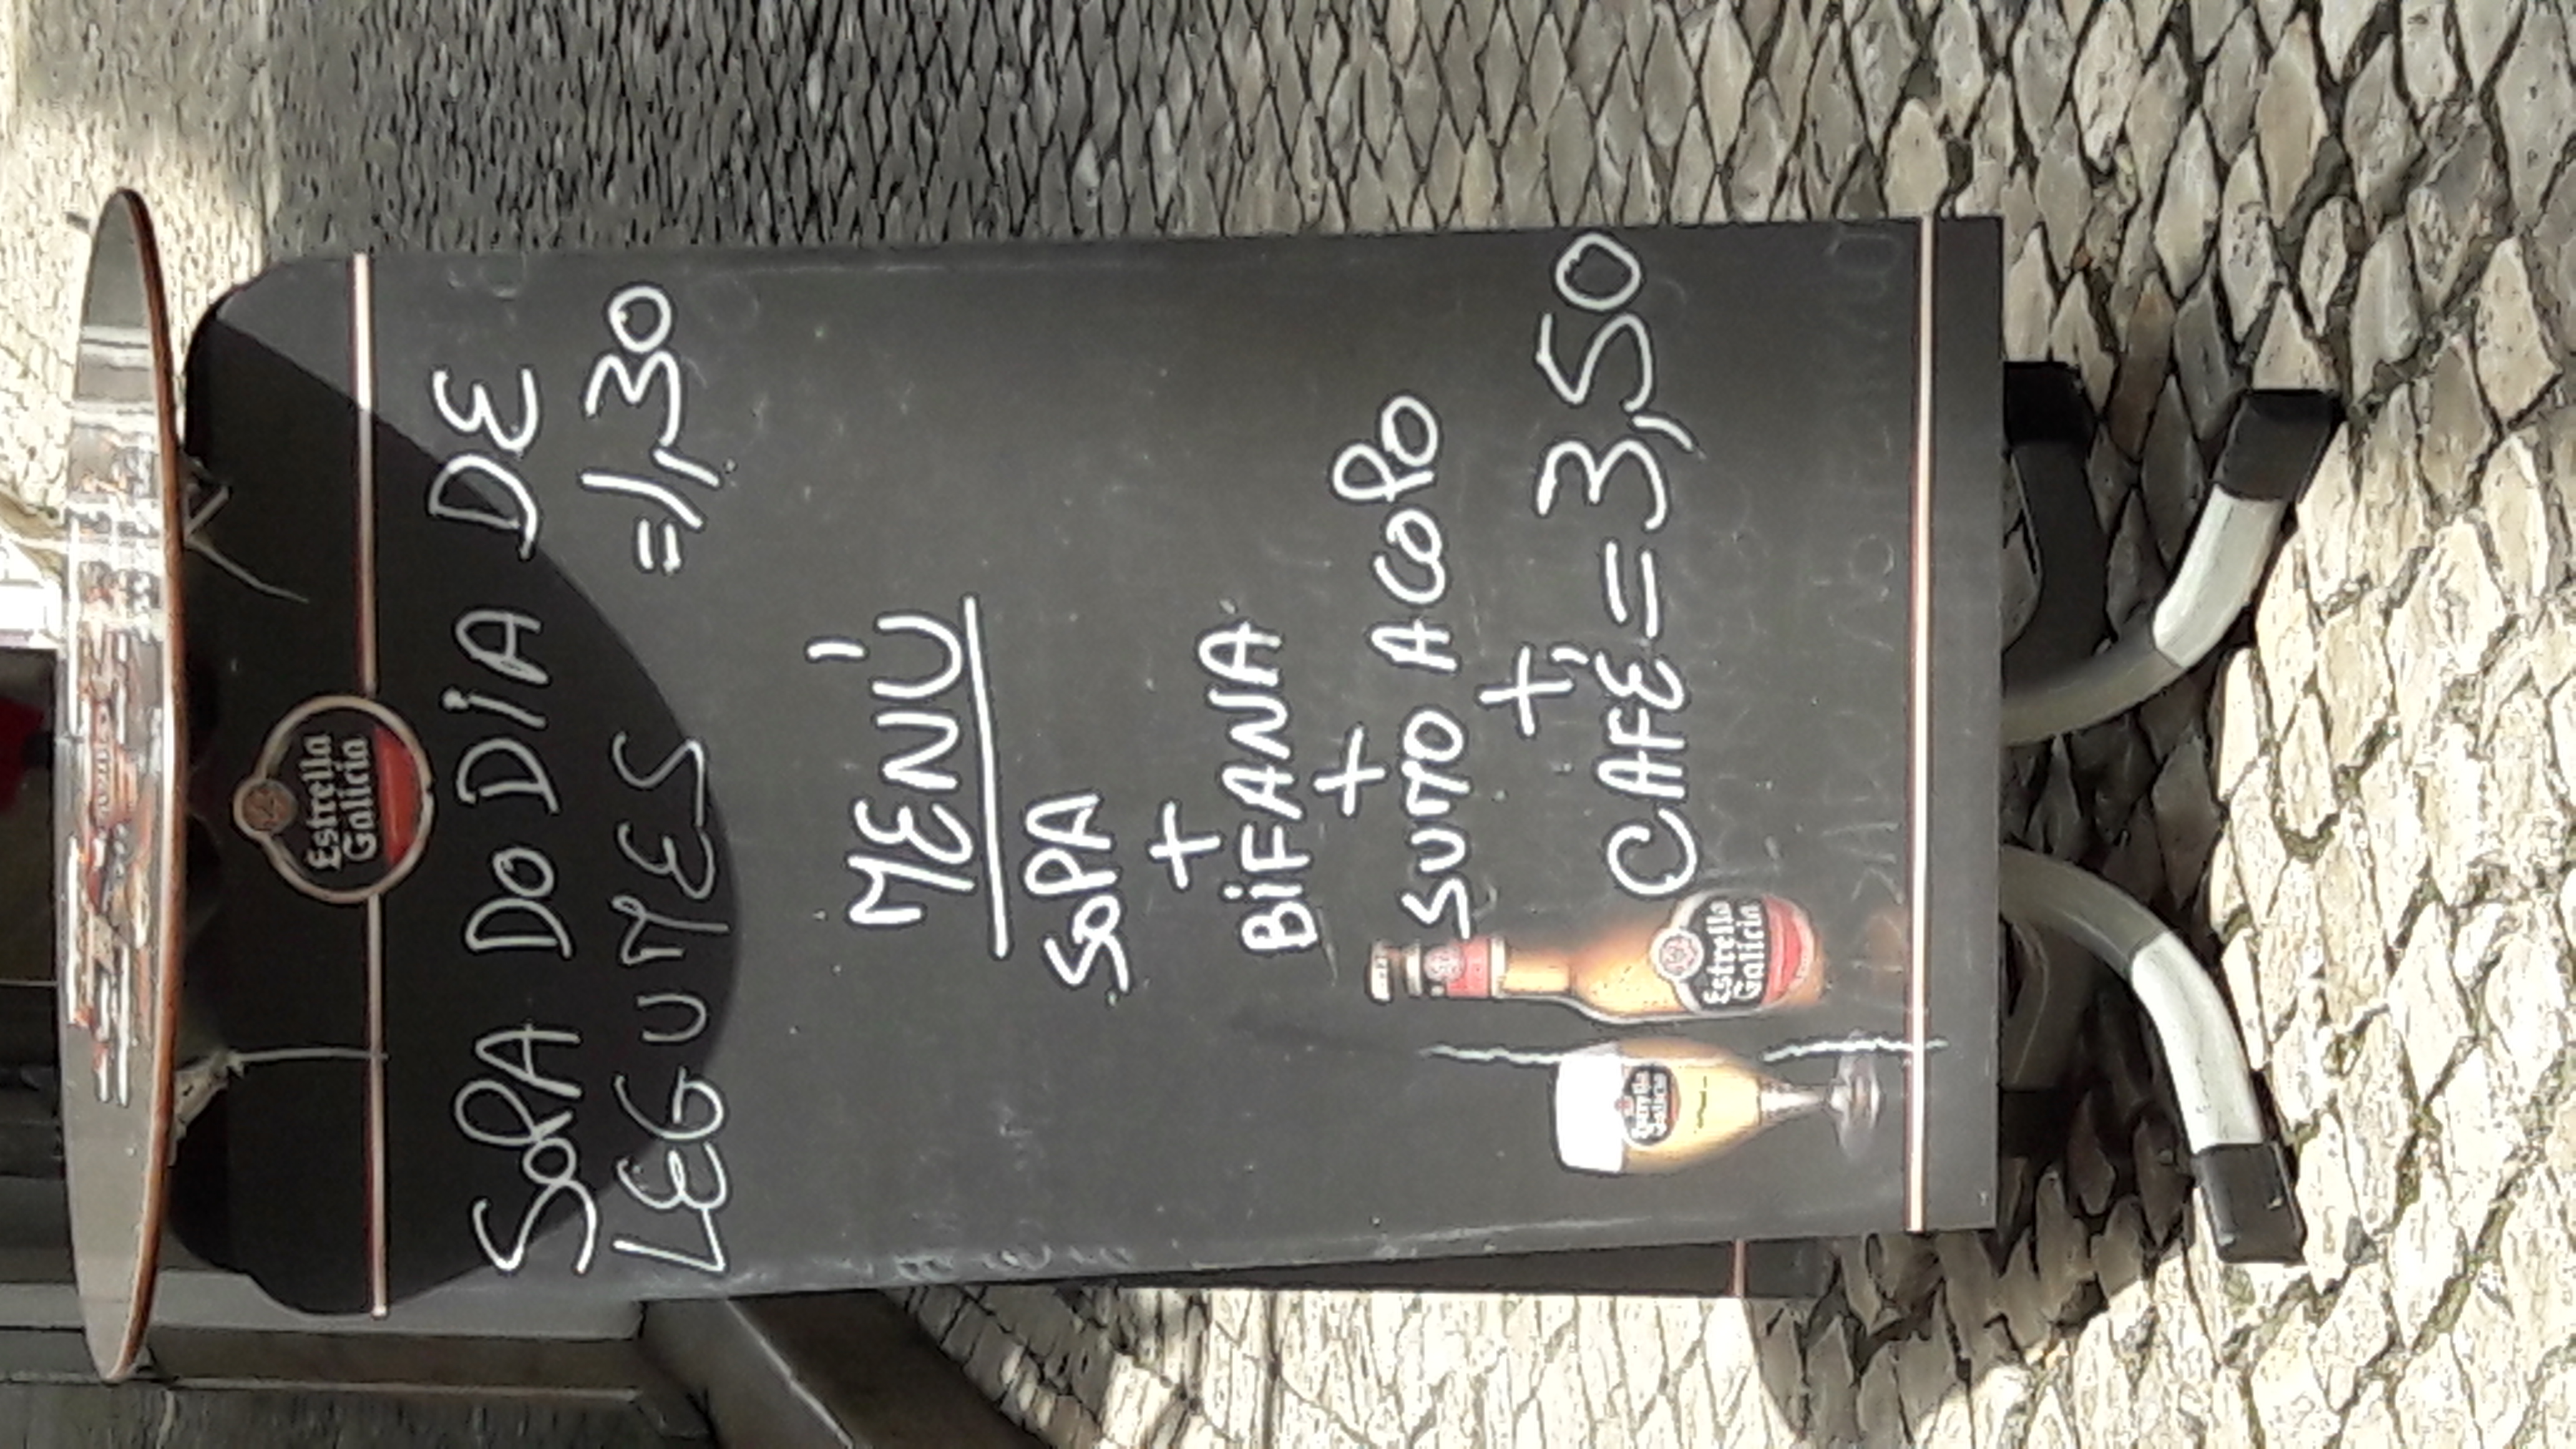 Estrella
Galicia
SOPA DO DIA DE
LEGUMES =1,30
MENÚ
SOPA
+
BIFANA
+
SUMO A COPO
+
CAFÉ = 3,50
Estrella
Galicia
Estrella
Galicia